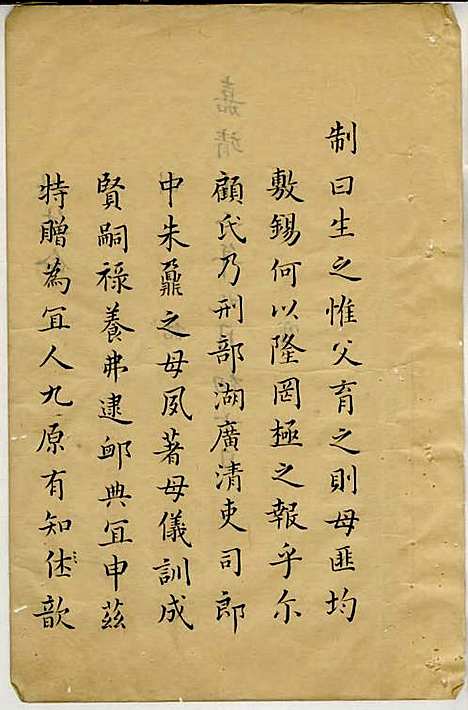 制曰生之惟父育之則母匪均
敷錫何以隆罔極之報乎尔
顧氏乃刑部湖廣清吏司郎
中朱鼐之母夙著母儀訓成
賢嗣祿養弗逮卹典冝申茲
特贈為冝人九原有知 歆